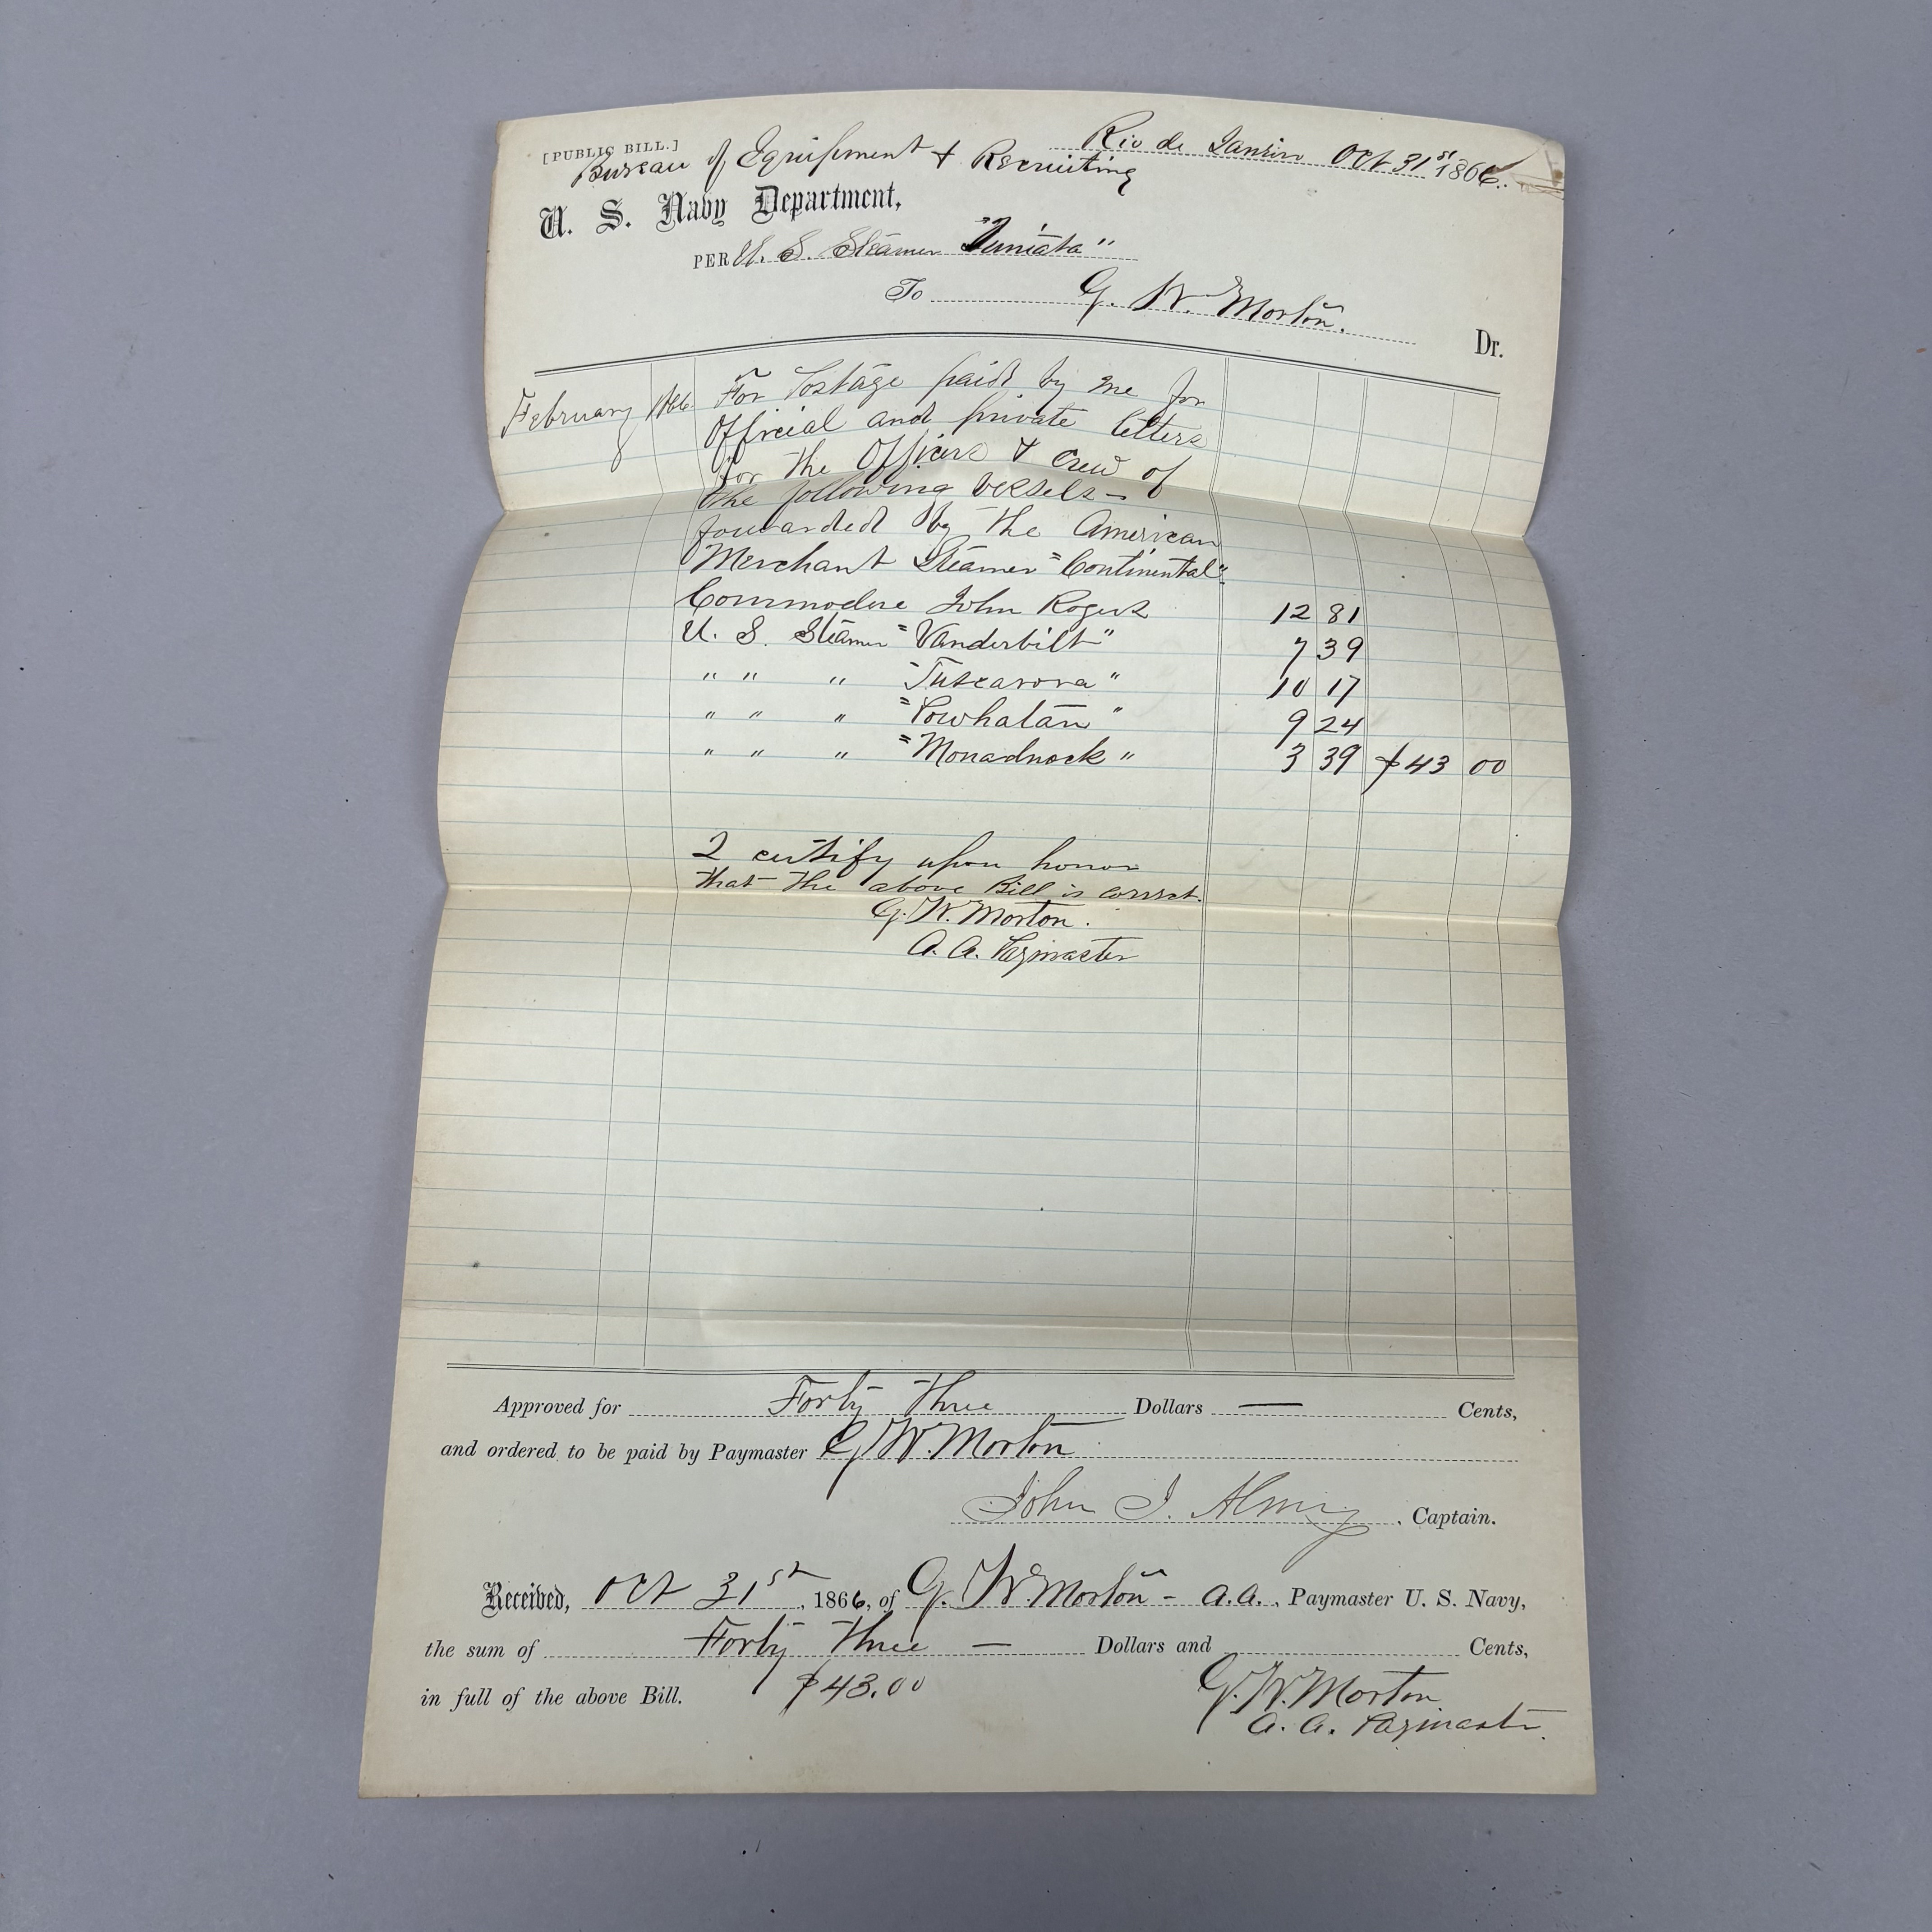 [PUBLIC BILL.]
Rio de Janeiro Oct 31st 1866.
Bureau of Equipment & Recruiting
U. S. Navy Department,
PER U. S. Steamer "Juniata"
To G. W. Morton. Dr.
February 1866 For Postage paid by me for
Official and private letters
for the Officers & crew of
the following Vessels —
forwarded by the American
Merchant Steamer "Continental"
Commodore John Rogers 12 81
U. S. Steamer "Vanderbilt" 7 39
" " " "Tuscarora" 10 17
" " " "Powhatan" 9 24
" " " "Monadnock" 3 39 $43 00
I certify upon honor
that the above Bill is correct.
G. W. Morton.
A. A. Paymaster
Approved for Forty three Dollars — Cents,
and ordered to be paid by Paymaster G. W. Morton
John J. Almy, Captain.
Received, Oct 31st, 1866, of G. W. Morton - A.A., Paymaster U. S. Navy,
the sum of Forty three — Dollars and Cents,
in full of the above Bill. $43.00
G. W. Morton
A. A. Paymaster.